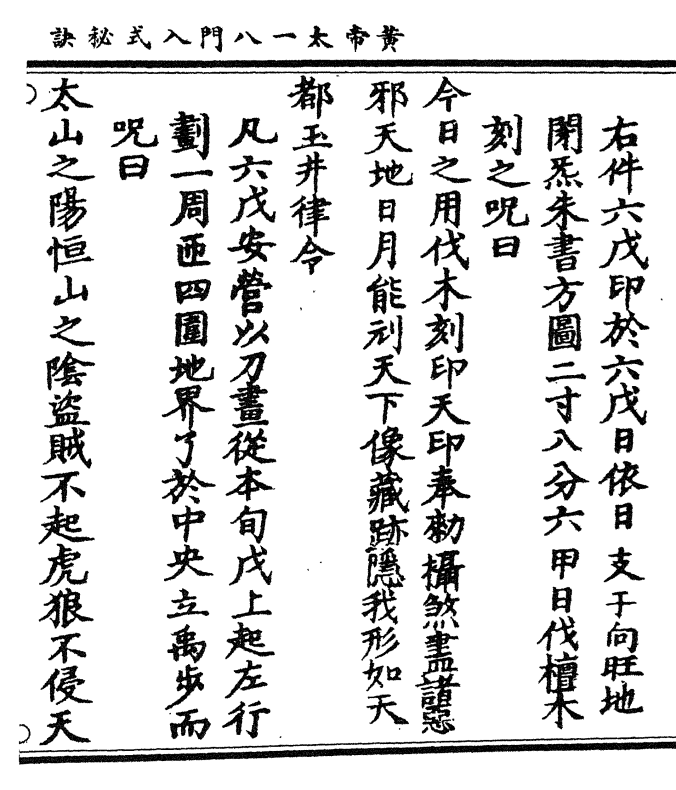 黃帝太一八門入式秘訣
右件六戊印於六戊日依日支干向旺地
閉炁朱書方圖二寸八分六甲日伐檀木
刻之呪曰
今日之用伐木刻印天印奉勑攝煞盡諸惡
邪天地日月能刓天下像藏跡隱我形如天
都玉井律令
凡六戊安營以刀畫從本旬戊上起左行
劃一周匝四圍地界了於中央立禹步而
呪曰
太山之陽恒山之陰盜賊不起虎狼不侵天